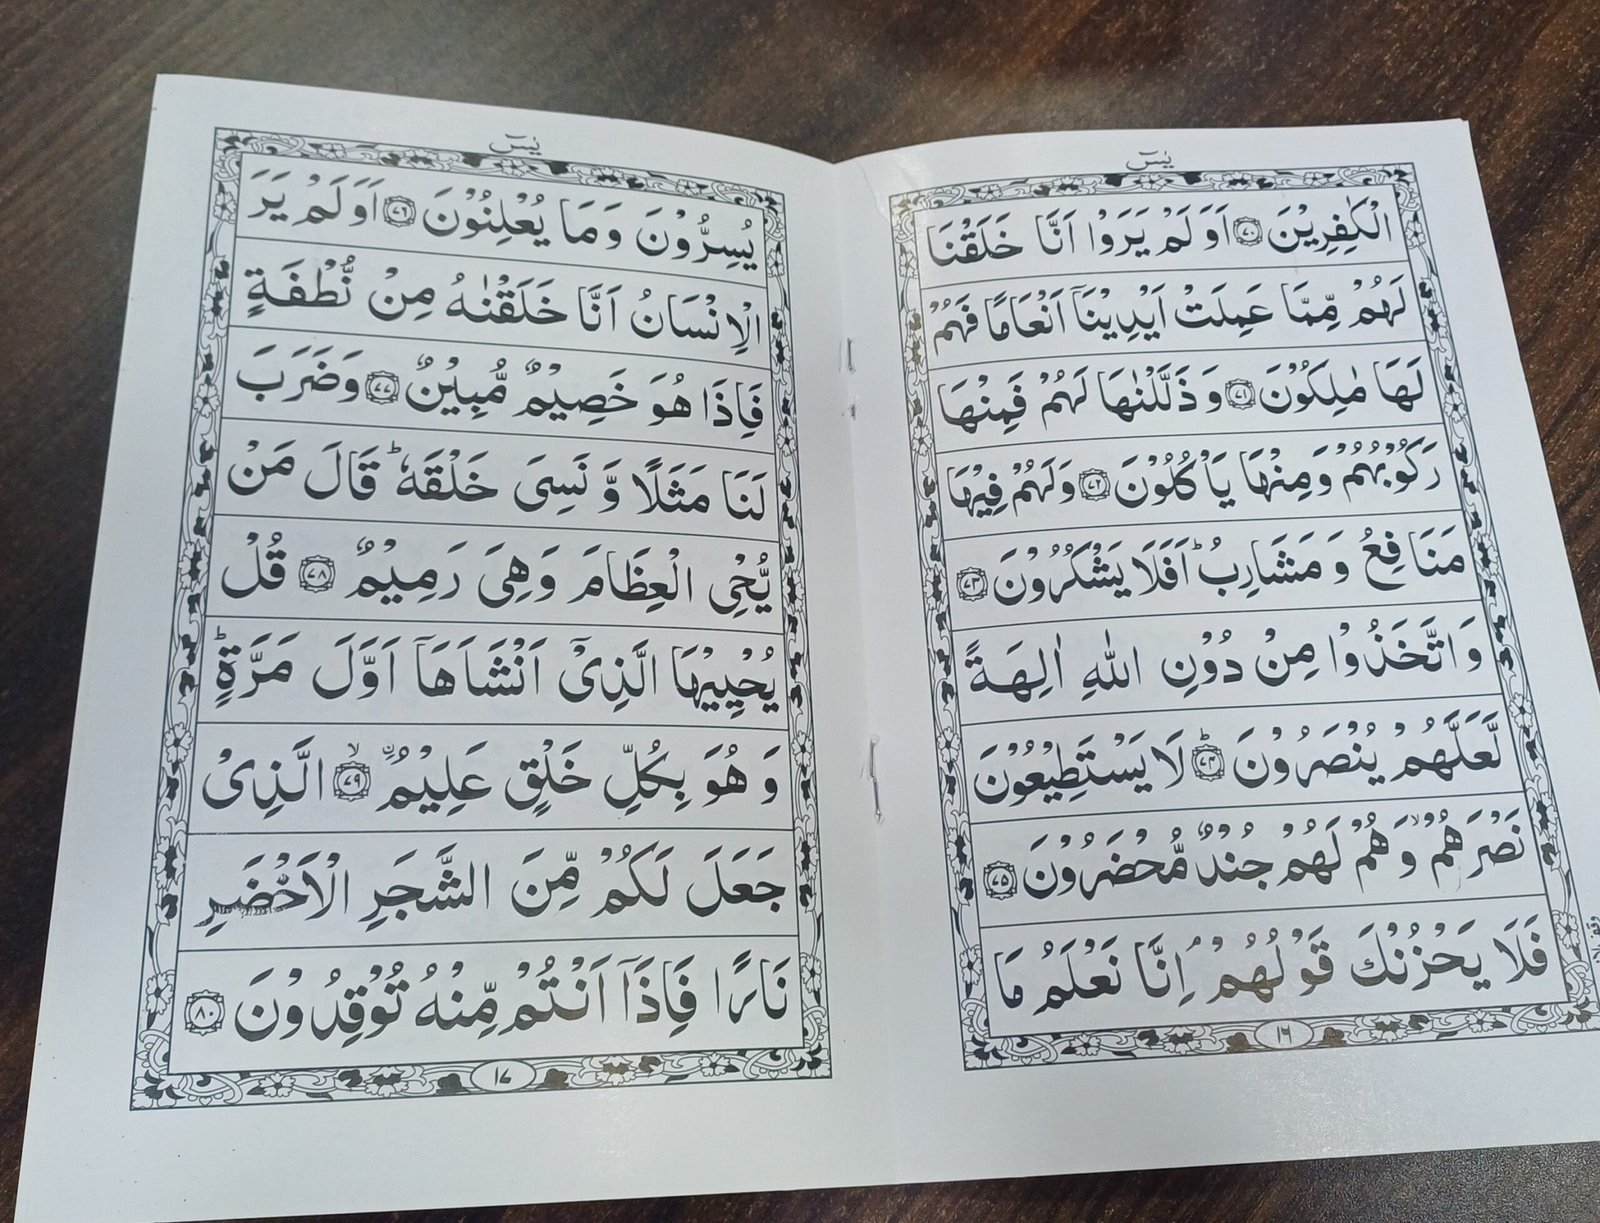 يٰسٓ
الْكٰفِرِيْنَ ۷۰ اَوَلَمْ يَرَوْا اَنَّا خَلَقْنَا
لَهُمْ مِّمَّا عَمِلَتْ اَيْدِيْنَاۤ اَنْعَامًا فَهُمْ
لَهَا مٰلِكُوْنَ ۷۱ وَذَلَّلْنٰهَا لَهُمْ فَمِنْهَا
رَكُوْبُهُمْ وَمِنْهَا يَاْكُلُوْنَ ۷۲ وَلَهُمْ فِيْهَا
مَنَافِعُ وَمَشَارِبُ ؕ اَفَلَا يَشْكُرُوْنَ ۷۳
وَاتَّخَذُوْا مِنْ دُوْنِ اللّٰهِ اٰلِهَةً
لَّعَلَّهُمْ يُنْصَرُوْنَ ؕ ۷۴ لَا يَسْتَطِيْعُوْنَ
نَصْرَهُمْ ۙ وَهُمْ لَهُمْ جُنْدٌ مُّحْضَرُوْنَ ۷۵
فَلَا يَحْزُنْكَ قَوْلُهُمْ ۘ اِنَّا نَعْلَمُ مَا
۱۶
يٰسٓ
يُسِرُّوْنَ وَمَا يُعْلِنُوْنَ ۷۶ اَوَلَمْ يَرَ
الْاِنْسَانُ اَنَّا خَلَقْنٰهُ مِنْ نُّطْفَةٍ
فَاِذَا هُوَ خَصِيْمٌ مُّبِيْنٌ ۷۷ وَضَرَبَ
لَنَا مَثَلًا وَّنَسِىَ خَلْقَهٗ ؕ قَالَ مَنْ
يُّحْىِ الْعِظَامَ وَهِىَ رَمِيْمٌ ۷۸ قُلْ
يُحْيِيْهَا الَّذِىْۤ اَنْشَاَهَاۤ اَوَّلَ مَرَّةٍ ؕ
وَهُوَ بِكُلِّ خَلْقٍ عَلِيْمُ ۙ ۷۹ الَّذِىْ
جَعَلَ لَكُمْ مِّنَ الشَّجَرِ الْاَخْضَرِ
نَارًا فَاِذَاۤ اَنْتُمْ مِّنْهُ تُوْقِدُوْنَ ۸۰
۱۷